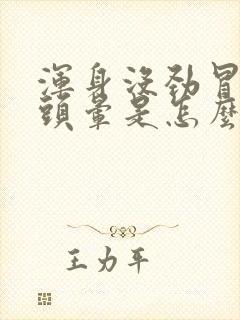 渾身沒勁冒
頭暈是怎麼
王力平